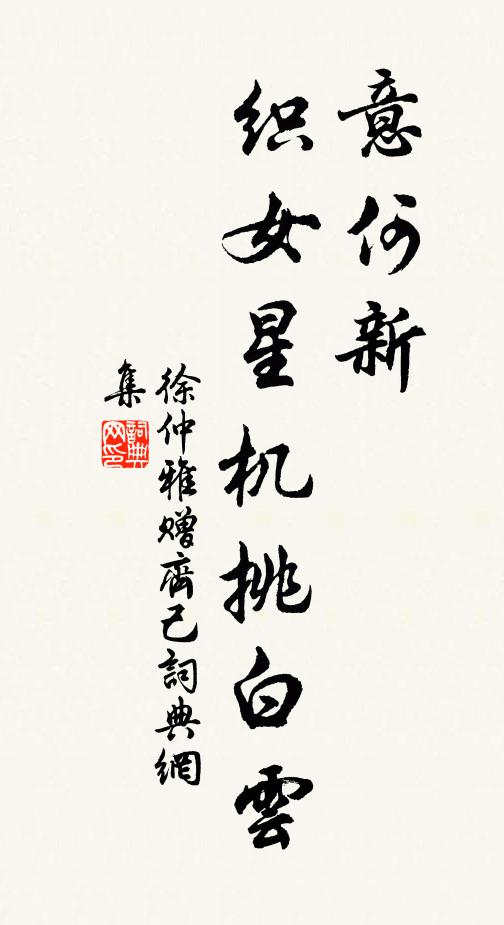 意何新
织女星机挑白雲
徐仲雅赠齊己詞典網
集
詞典
网印